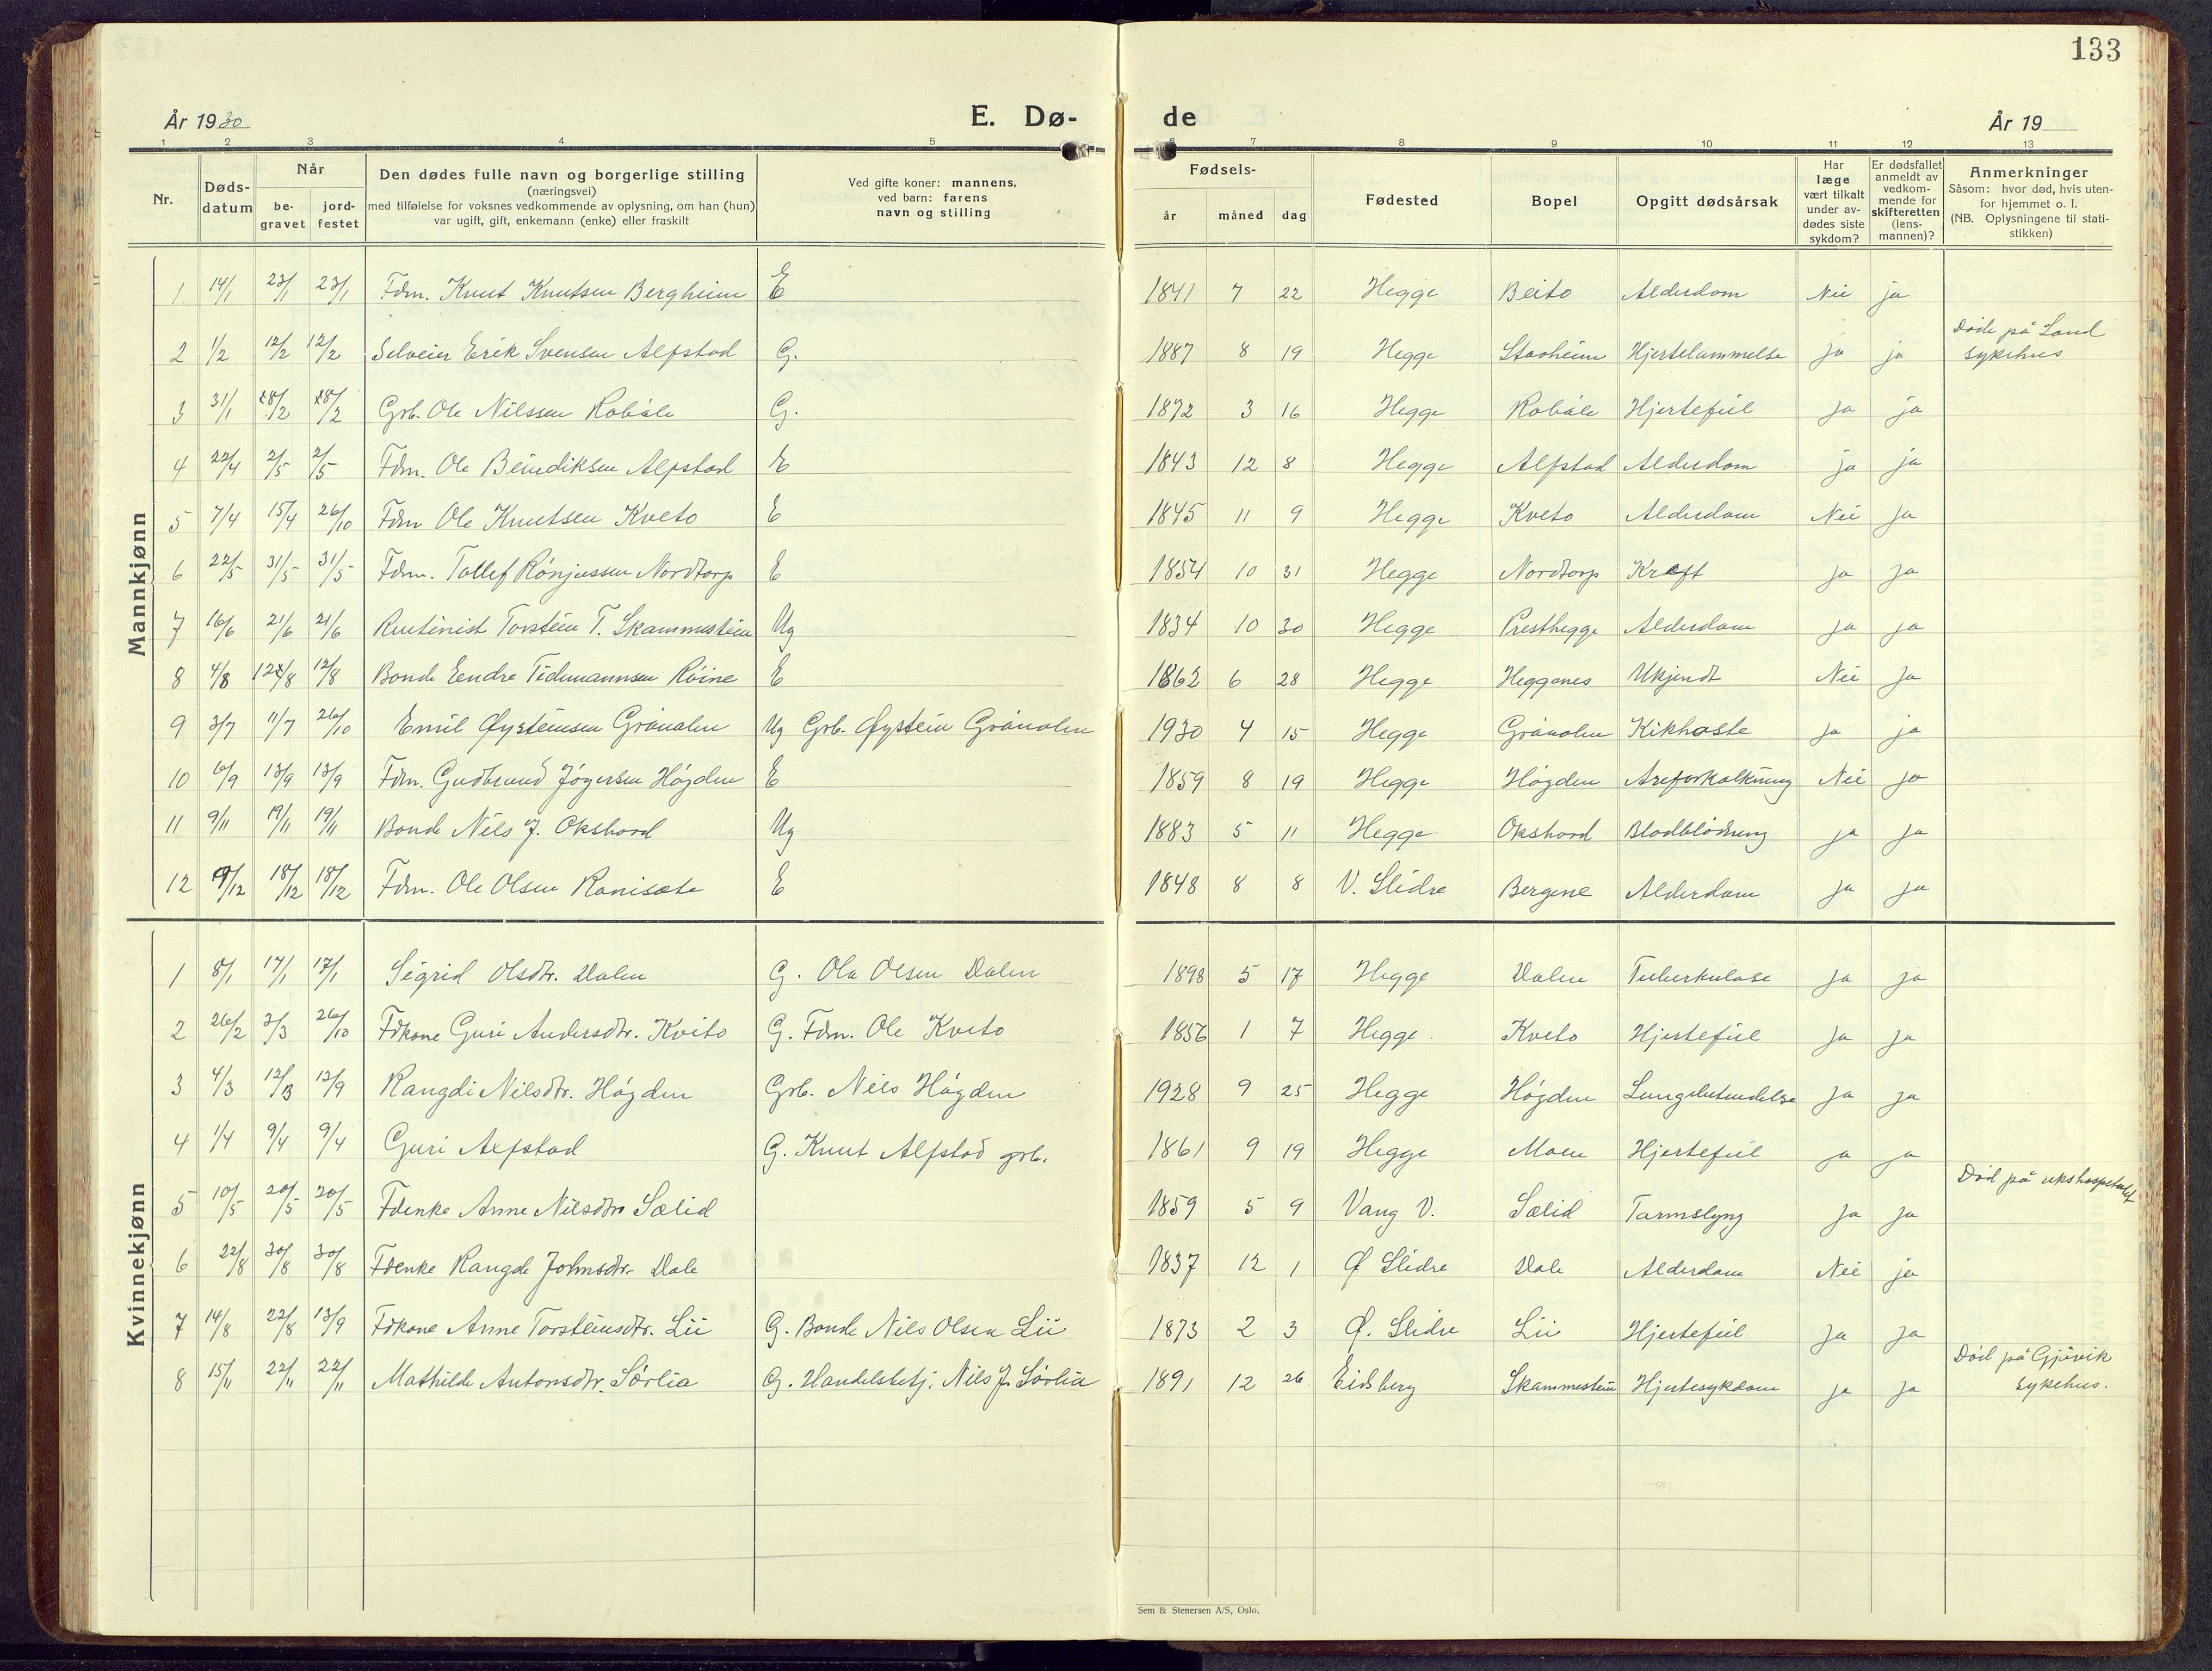 133
År 1930 E. Dø- de År 19
1 2 3 4 5 6 7 8 9 10 11 12 13
Nr.
Døds-
datum
Når
be-
gravet
jord-
festet
Den dødes fulle navn og borgerlige stilling
(næringsvei)
med tilføielse for voksnes vedkommende av oplysning, om han (hun)
var ugift, gift, enkemann (enke) eller fraskilt
Ved gifte koner: mannens,
ved barn: farens
navn og stilling
Fødsels-
år måned dag
Fødested
Bopel
Opgitt dødsårsak
Har
læge
vært tilkalt
under av-
dødes siste
sykdom?
Er dødsfallet
anmeldt av
vedkom-
mende for
skifteretten
(lens-
mannen)?
Anmerkninger
Såsom: hvor død, hvis uten-
for hjemmet o. l.
(NB. Oplysningene til stati-
stikken)
Mannkjønn
1 14/1 23/1 23/1 Fdm. Knut Knutsen Bergheim E 1841 7 22 Hegge Beito Alderdom Nei ja
2 1/2 12/2 12/2 Selveier Erik Svensen Alfstad G. 1887 8 19 Hegge Starheim Hjertelammelse ja ja Døde på Land
sykehus
3 31/1 28/2 28/2 Grb. Ole Nilssen Robøle G. 1872 3 16 Hegge Robøle Hjertefeil ja ja
4 22/4 2/5 2/5 Fdm. Ole Beindiksen Alfstad E 1843 12 8 Hegge Alfstad Alderdom ja ja
5 7/4 15/4 26/10 Fdm Ole Knutsen Kveto E 1845 11 9 Hegge Kveto Alderdom Nei ja
6 22/5 31/5 31/5 Fdm. Tollef Rønjussen Nordtorp E 1854 10 31 Hegge Nordtorp Kreft ja ja
7 16/6 21/6 21/6 Rentenist Torstein T. Skammestein Ug 1834 10 30 Hegge Presthegge Alderdom ja ja
8 4/8 12/8 12/8 Bonde Eendre Tidemannsen Røine E 1862 6 28 Hegge Heggenes Ukjendt Nei ja
9 3/7 11/7 26/10 Emil Øysteinsen Grånolen Ug Grb. Øystein Grånolen 1930 4 15 Hegge Grånolen Kikhoste ja ja
10 6/9 13/9 13/9 Fdm. Gudbrand Jøgersen Høgden E 1859 8 19 Hegge Høgden Areforkalkning Nei ja
11 9/11 19/11 19/11 Bonde Nils J. Okshovd Ug 1883 5 11 Hegge Okshovd Blodblødning ja ja
12 9/12 18/12 18/12 Fdm. Ole Olsen Ranisæte E 1848 8 8 V. Slidre Bergene Alderdom ja ja
Kvinnekjønn
1 8/1 17/1 17/1 Sigrid Olsdtr. Dalen G. Ola Olsen Dalen 1898 5 17 Hegge Dalen Tuberkulose ja ja
2 26/2 3/3 26/10 Fdkone Guri Andersdtr. Kvito G. Fdm. Ole Kveto 1856 1 7 Hegge Kveto Hjertefeil ja ja
3 4/3 12/3 13/9 Rangdi Nilsdtr. Høgden Grb. Nils Høgden 1928 9 25 Hegge Høgden Lungebetendelse ja ja
4 1/4 9/4 9/4 Guri Alfstad G. Knut Alfstad grb. 1861 9 19 Hegge Moen Hjertefeil ja ja
5 10/5 20/5 20/5 Fdenke Anne Nilsdtr Sælid 1859 5 9 Vang V. Sælid Tarmslyng ja ja Død på rikshospitalet
6 22/8 30/8 30/8 Fdenke Rangdi Johnsdtr. Dale 1837 12 1 Ø Slidre Dale Alderdom Nei ja
7 14/8 22/8 13/9 Fdkone Anne Torsteinsdtr. Lii G. Bonde Nils Olsen Lii 1873 2 3 Ø. Slidre Lii Hjertefeil ja ja
8 15/11 22/11 22/11 Mathilde Antonsdtr. Sørlia G. Handelsbetj. Nils J. Sørlia 1891 12 26 Eidsberg Skammestein Hjertesykdom ja ja Død på Gjøvik
sykehus.
Sem & Stenersen A/S, Oslo.